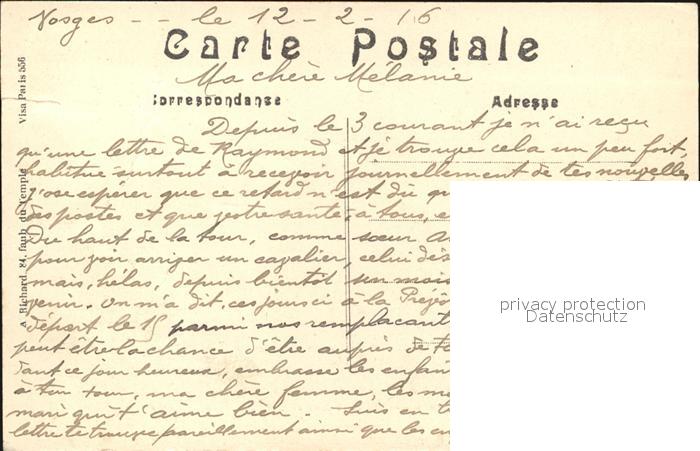 Vosges - - le 12 - 2 - 16
Carte Postale
Ma chère Mélanie
Correspondance
Adresse
Depuis le 3 courant je n'ai reçu
qu'une lettre de Raymond et je trouve cela un peu fort,
habitué surtout à recevoir journellement de tes nouvelles
J'ose espérer que ce retard n'est dû qu
des postes et que votre santé, à tous, e
Du haut de la tour, comme sœur
pour voir arriver un cavalier, celui dés
mais, hélas, depuis bientôt un mois
venir. On m'a dit, ces jours ci à la
départ le 15 parmi nos remplaçant
peut être la chance d'être auprès de
tant ce jour heureux, embrasse les enfan
à ton tour, ma chère femme, les me
mari qui t'aime bien. Suis en
lettre te trouve pareillement ainsi que les en
A Richard. 84. faub. du Temple
Visa Paris 556
privacy protection
Datenschutz